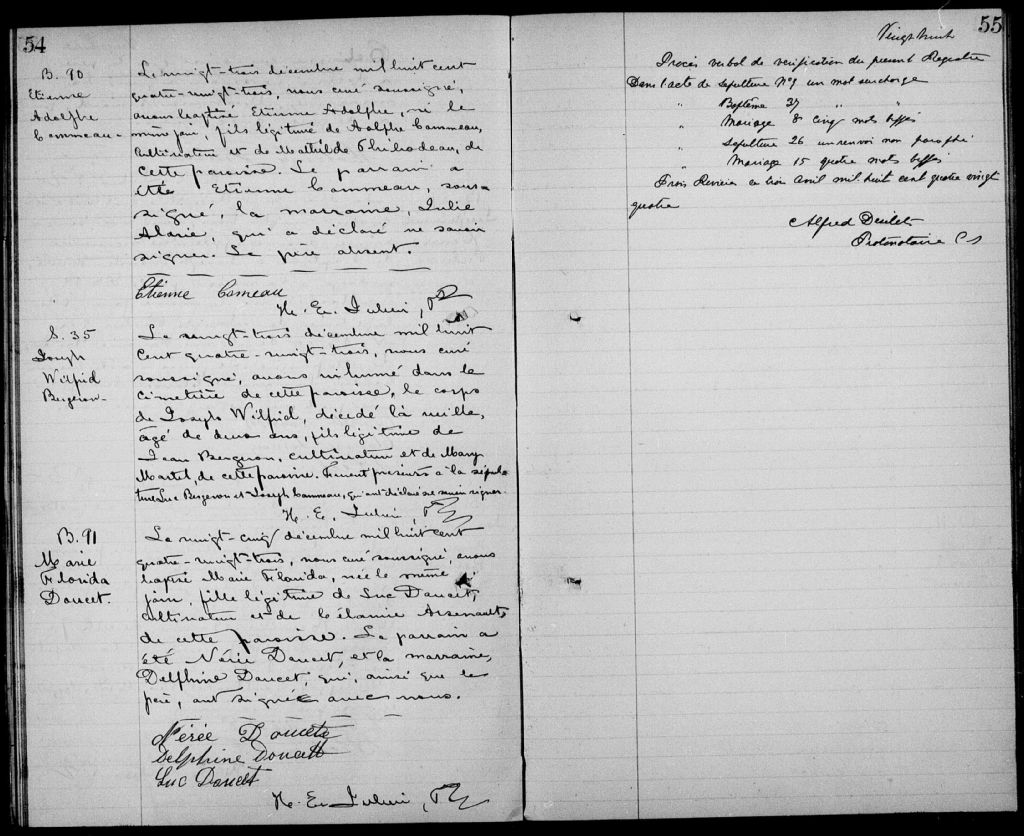 54
B. 90
Etienne
Adolphe
Commeau-
Le vingt-trois décembre mil huit cent
quatre-vingt-trois, nous curé soussigné,
avons baptisé Etienne Adolphe, né le
même jour, fils légitime de Adolphe Commeau,
cultivateur et de Mathilde Thibodeau, de
cette paroisse. Le parrain a
été Etienne Commeau, sous-
signé, la marraine, Julie
Alarie, qui a déclaré ne savoir
signer. Le père absent.
Etienne Comeau
H. E. Ptre
S. 35
Joseph
Wilfrid
Bergeron-
Le vingt-trois décembre mil huit
cent quatre-vingt-trois, nous curé
soussigné, avons inhumé dans le
cimetière de cette paroisse, le corps
de Joseph Wilfrid, décédé la veille,
âgé de deux ans, fils légitime de
Jean Bergeron, cultivateur et de Mary
Martel, de cette paroisse. Furent présents à la sépul-
ture Luc Bergeron et Joseph Commeau, qui ont déclaré ne savoir signer.
H. E. Ptre
B. 91
Marie
Florida
Doucet.
Le vingt-cinq décembre mil huit cent
quatre-vingt-trois, nous curé soussigné, avons
baptisé Marie Florida, née le même
jour, fille légitime de Luc Doucet,
cultivateur et de Mélanie Arsenault,
de cette paroisse. Le parrain a
été Nérée Doucet, et la marraine,
Delphine Doucet, qui, ainsi que le
père, ont signé avec nous.
Nérée Doucete
Delphine Doucett
Luc Doucet
H. E. Ptre
55
Vingt huit
Procès verbal de vérification du present Registre
Dans l'acte de sepulture No 9 un mot surchargé
" Baptême 37 " "
" Mariage 8 cinq mots biffés
" Sepulture 26 un renvoi non paraphé
" Mariage 15 quatre mots biffés
Trois Rivières ce trois avril mil huit cent quatre vingt
quatre
Alfred Desilets
Protonotaire C S